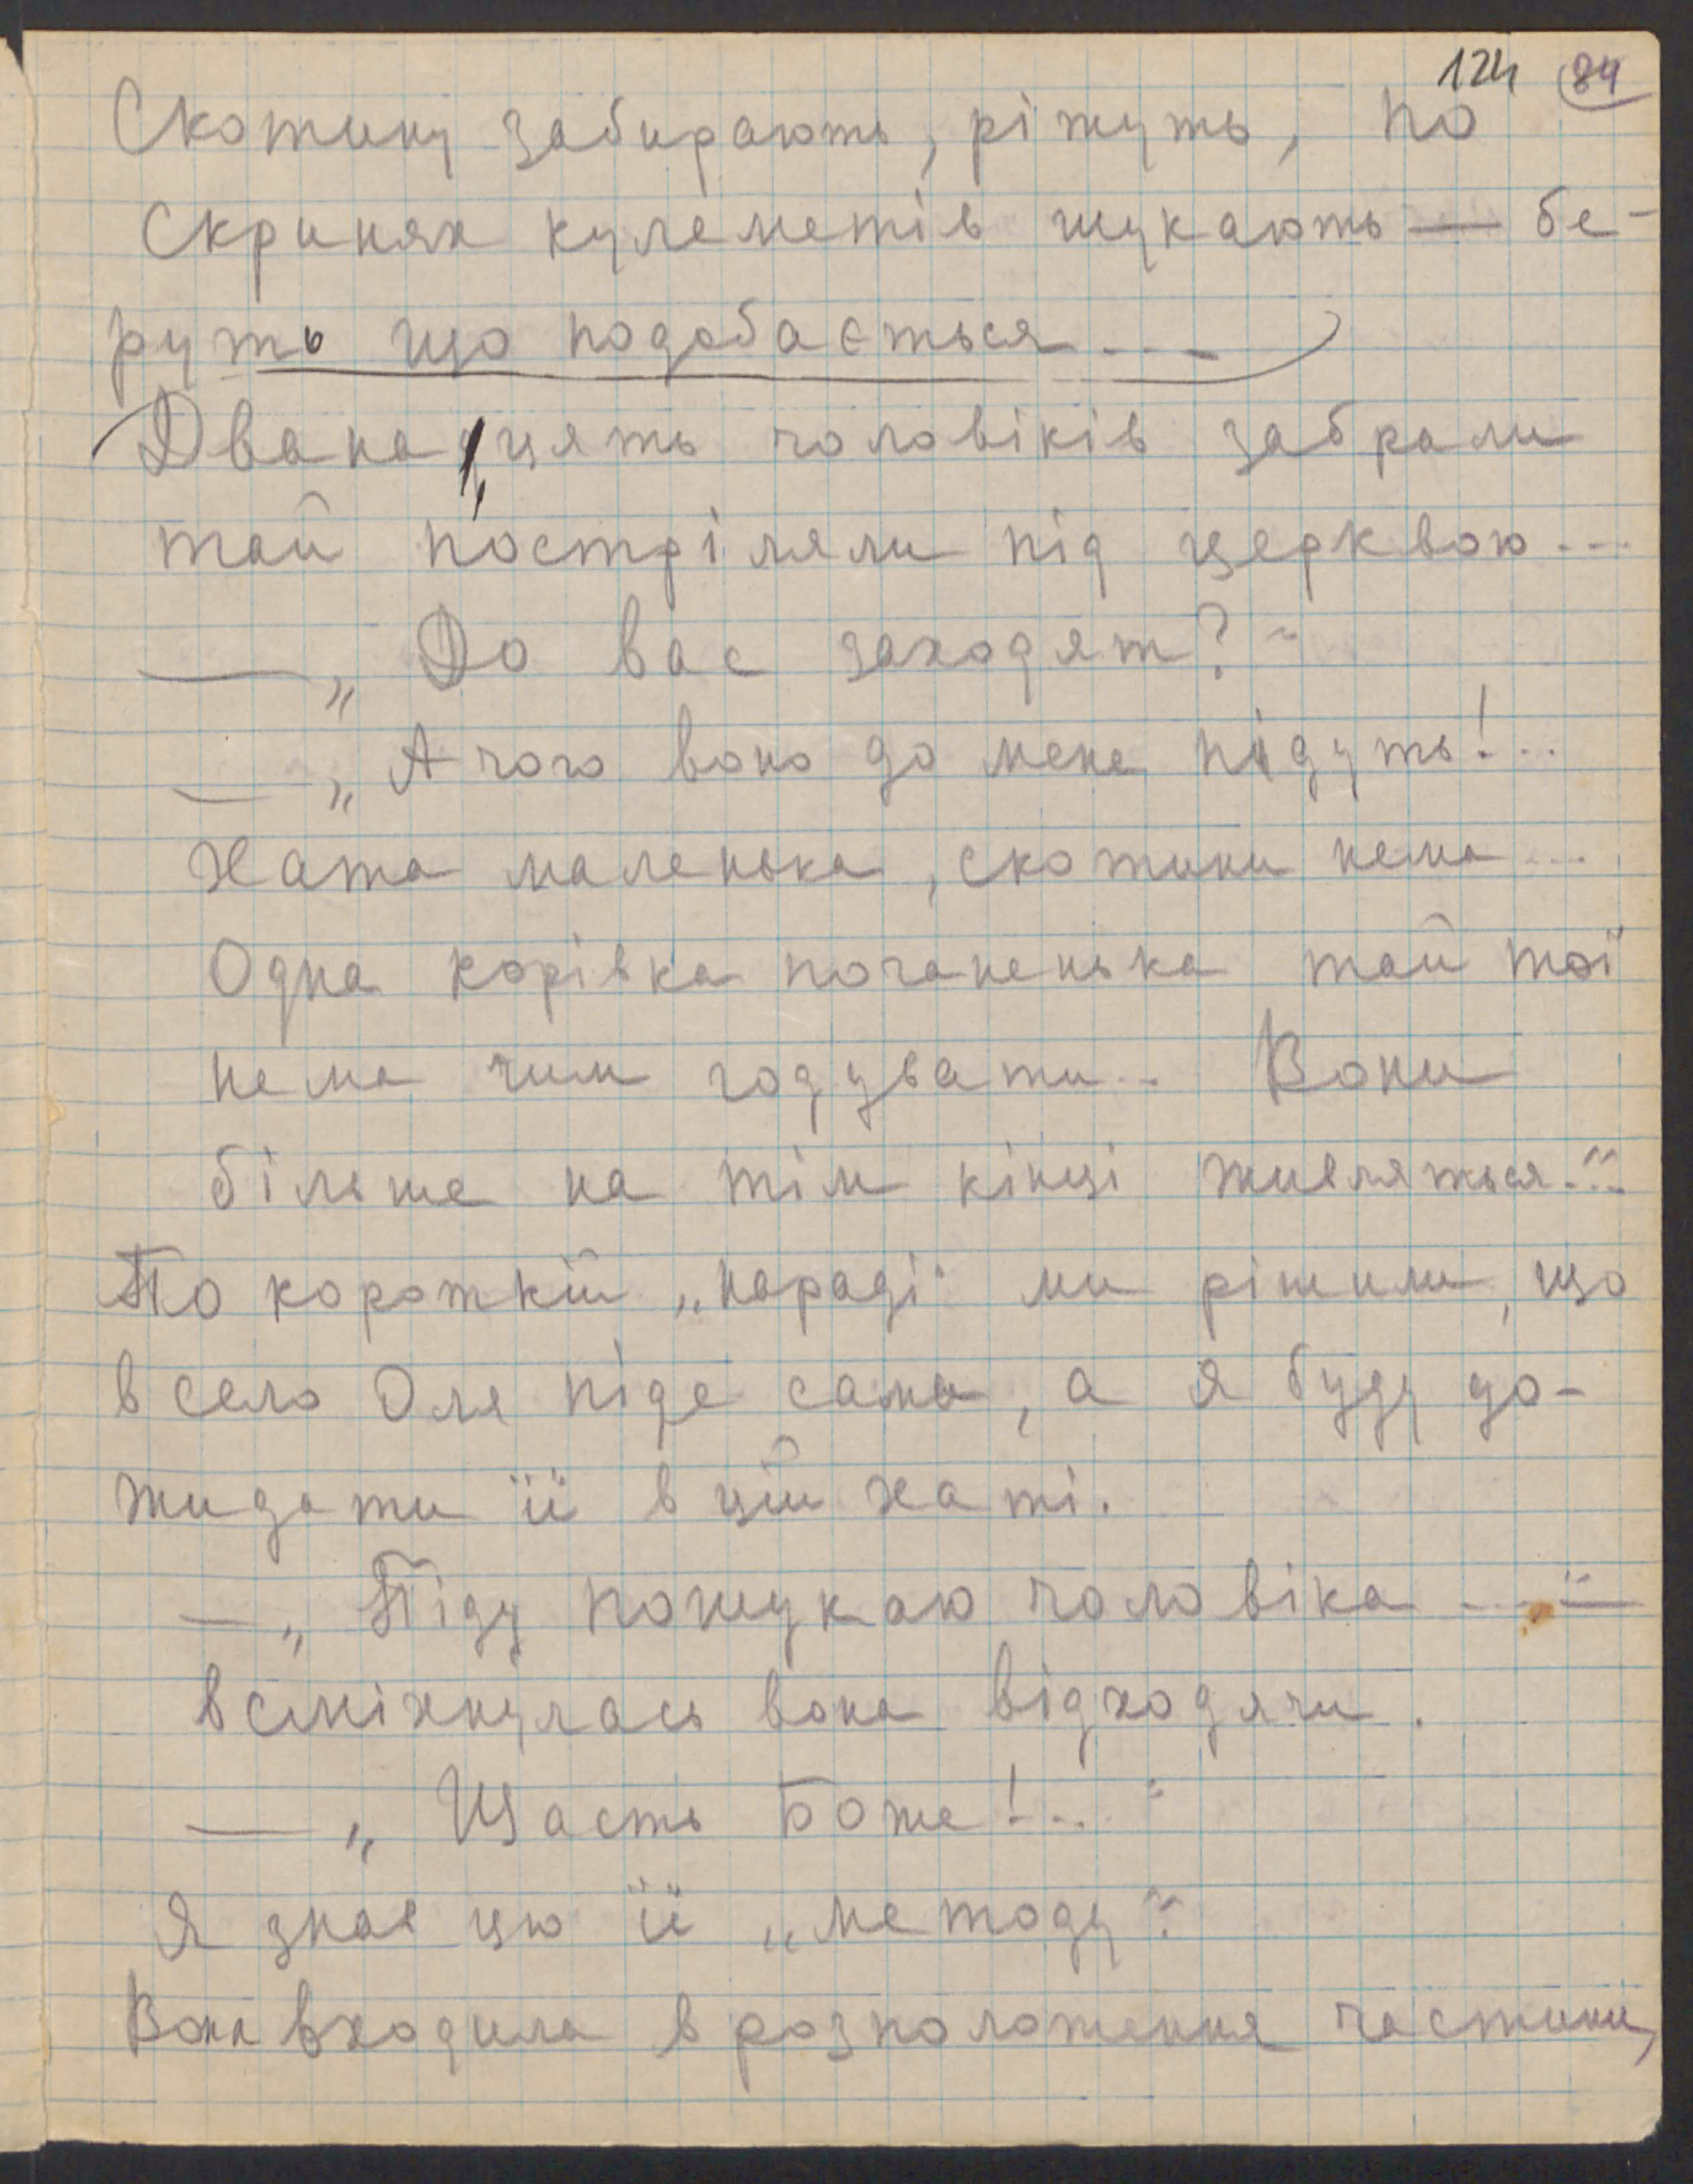 124 84
Скотину забирають, ріжуть, по
скринях кулеметів шукають — бе-
руть що подобається...
Дванадцять чоловіків забрали
тай постріляли під церквою...
— „До вас заходят?“
— „А чого воно до мене підуть!...
Хата маленька, скотини нема...
Одна корівка поганенька тай тої
нема чим годувати... Вони
більше на тім кінці живляться...“
По короткій „нараді“ ми рішили, що
в село Оля піде сама, а я буду до-
жидати її в цій хаті.
— „Піду пошукаю чоловіка...“ —
всміхнулась вона відходячи.
— „Щасть Боже!...“
Я знав цю її „методу“.
Вона входила в розположення частини,